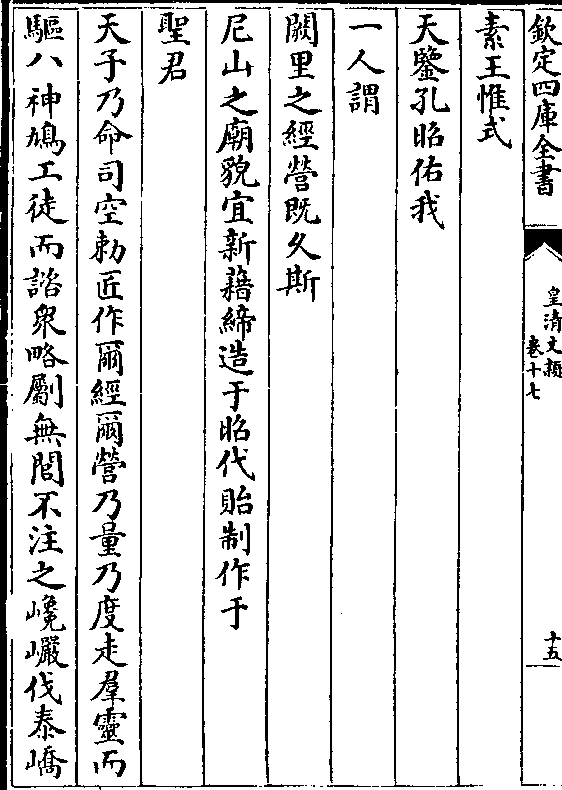 欽定四庫全書
皇清文穎
卷十七
十五
素王惟式
天鑒孔昭佑我
一人謂
闕里之經營既久斯
尼山之廟貌宜新藉締造于昭代貽制作于
聖君
天子乃命司空勅匠作爾經爾營乃量乃度走羣靈而
驅八神鳩工徒而諮衆略劚無閭不注之巉巗伐泰嶠